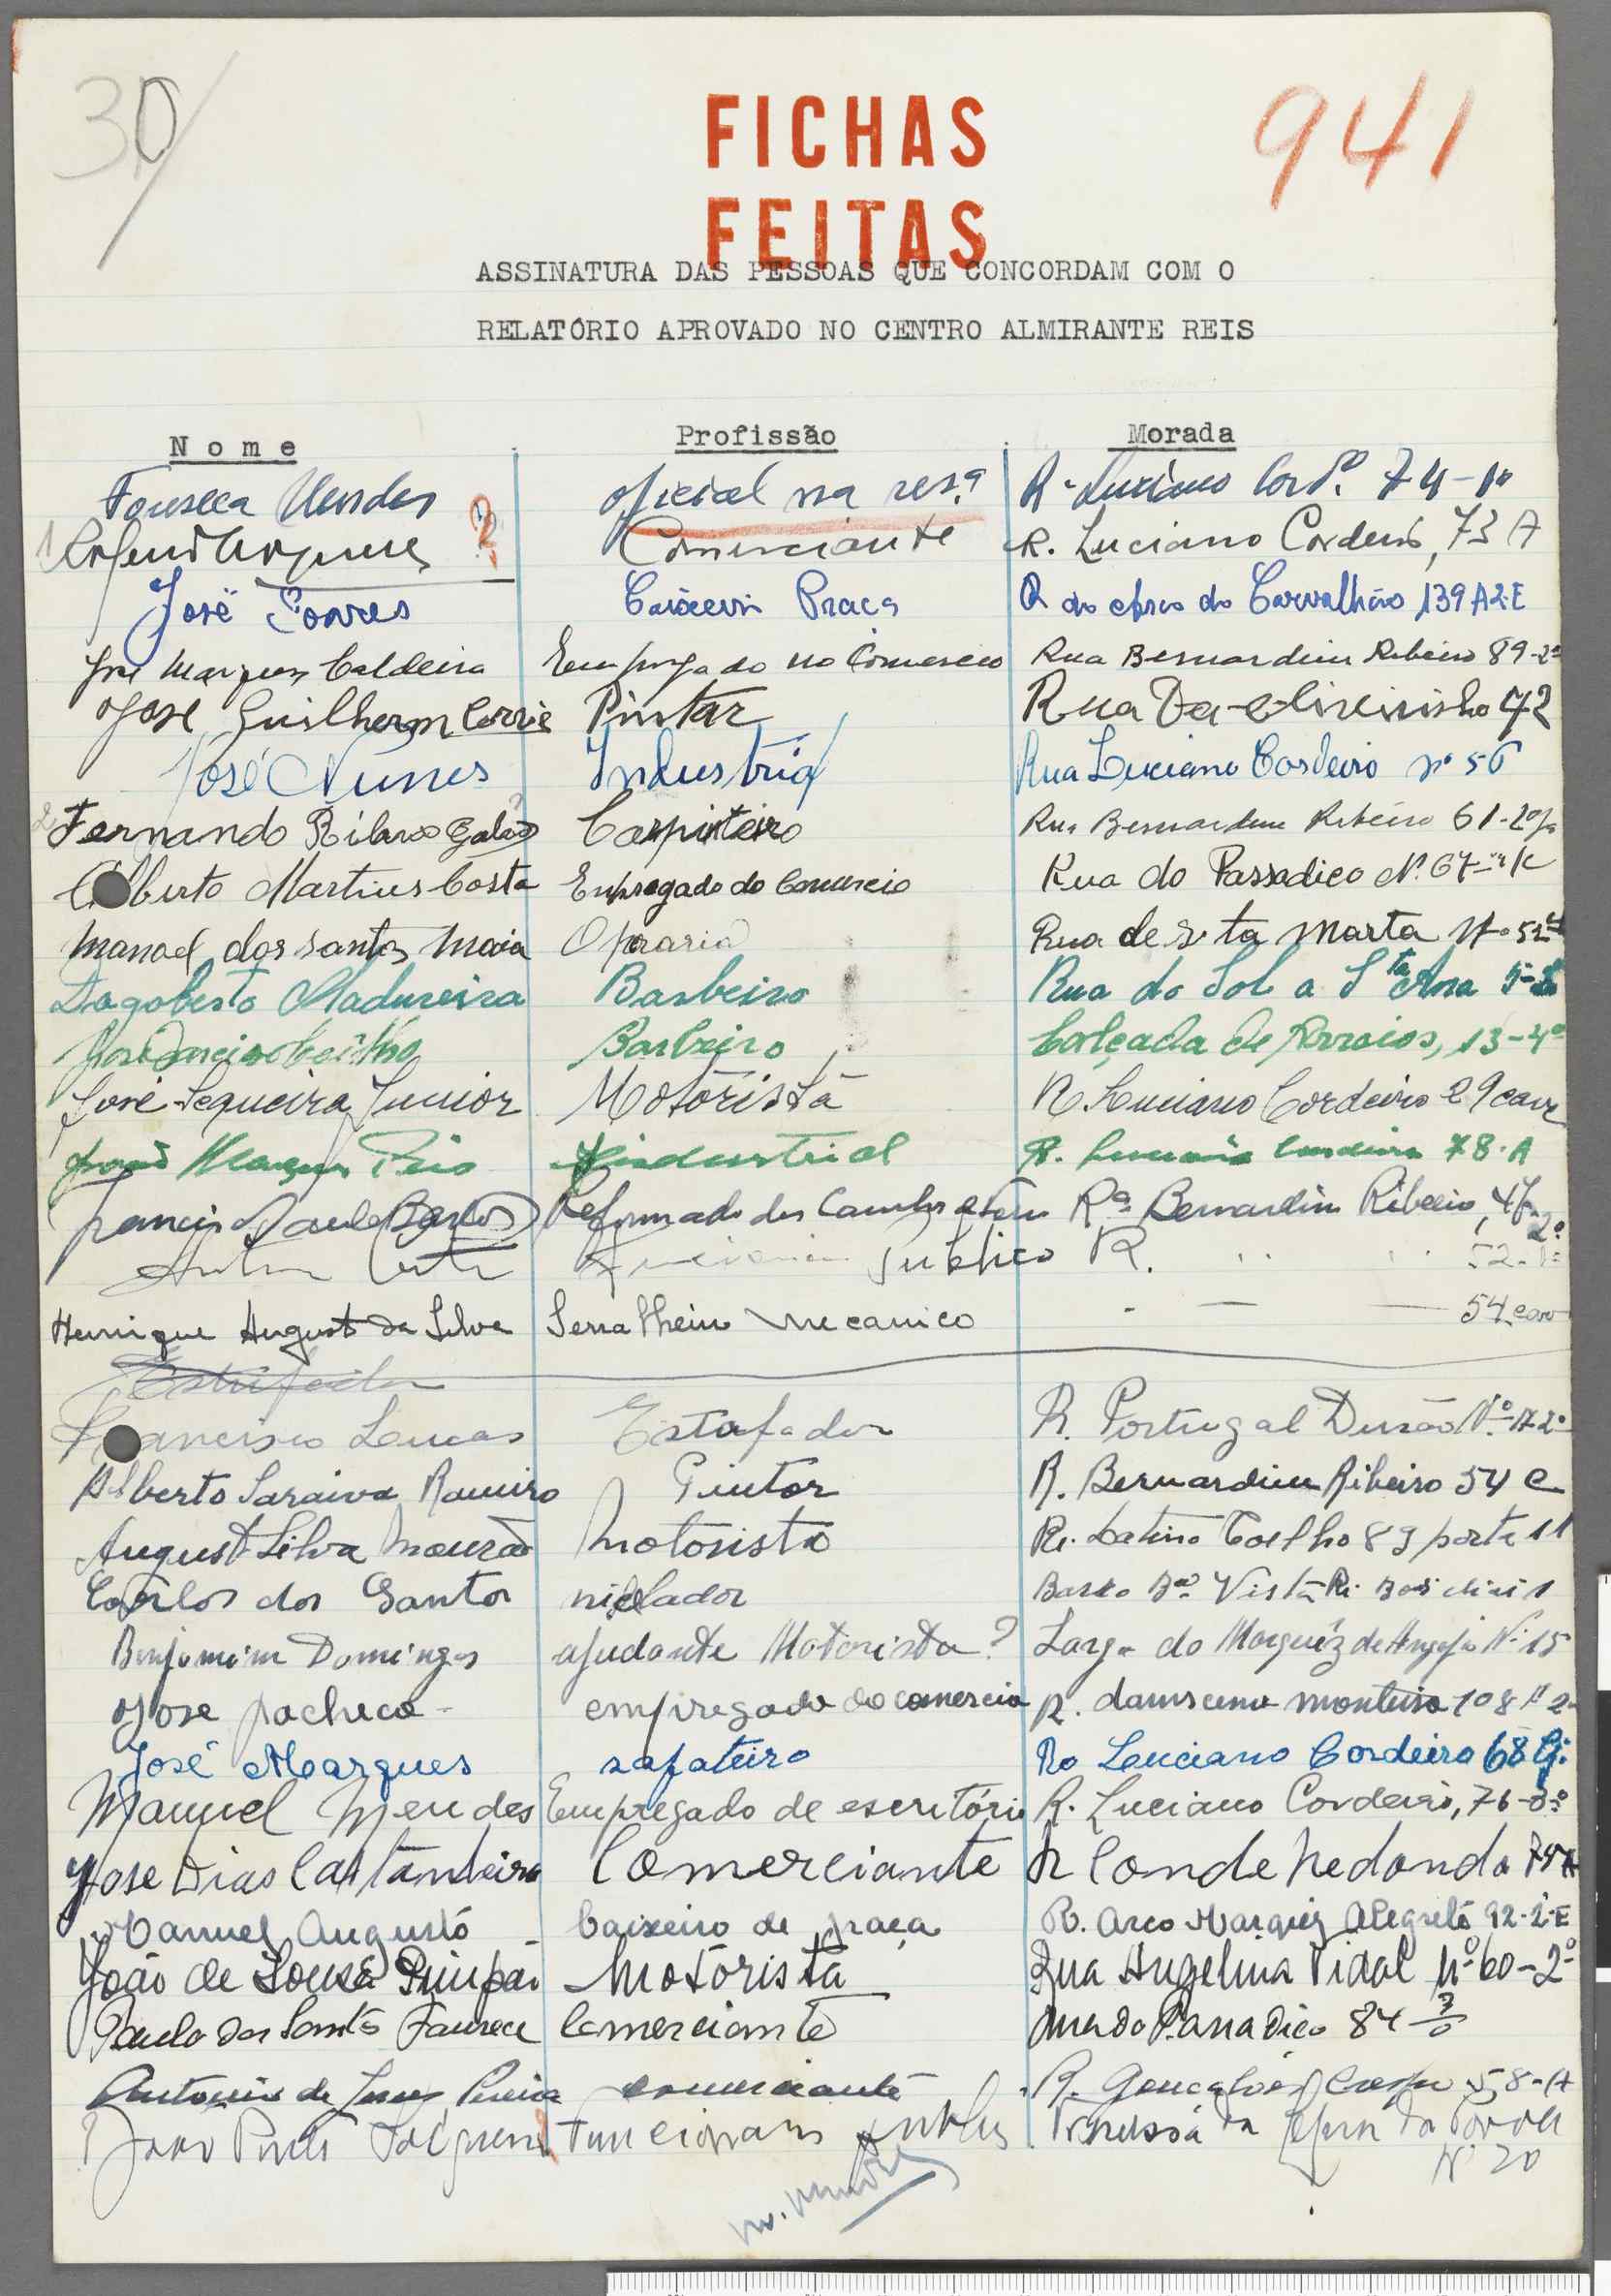 30
941
FICHAS
FEITAS
ASSINATURA DAS PESSOAS QUE CONCORDAM COM O
RELATÓRIO APROVADO NO CENTRO ALMIRANTE REIS
Nome Profissão Morada
Fonseca Mendes oficial na resª R. Luciano Cordº. 74-1º
? Comerciante R. Luciano Cordeiro, 73 A
José Soares Caixeiro Praça R do Arco do Carvalhão 139 A 2.E
José Marques Caldeira Empregado no Comercio Rua Bernardim Ribeiro 89-2º
José Guilherm Correie Pintar Rua Da Oliveirinha 42
José Nunes Industrial Rua Luciano Cordeiro nº 56
Fernando Ribeiro Galvão Carpinteiro Rua Bernardim Ribeiro 61-2º
Alberto Martins Costa Empregado do Comercio Rua do Passadiço Nº 67 r/c
Manoel dos Santos Maia Operario Rua de Sta Marta Nº 52
Dagoberto Madureira Barbeiro Rua do Sol a Sta Ana 5
José Barbeiro Calçada de Arroios, 13-4º
José Sequeira Junior Motorista R. Luciano Cordeiro 29 cave
Marques industrial R. Luciano Cordeiro 78-A
Francisco Paulo Bastos Reformado dos Rª Bernardim Ribeiro, 47-2º
Publico R. " " 52-1º
Henrique Augusto da Silva Serralheiro mecanico - — — 54 cave
Francisco Lucas Estafador R. Portugal Durão Nº 17 2º
Alberto Saraiva Ramiro Pintor R. Bernardim Ribeiro 54 C
Augusto Silva Mourão Motorista R. Latino Coelho 89 porta 11
Carlos dos Santos niclador
Benjamim Domingos ajudante Motorista? Largo do Marquêz de Angeja Nº 15
José pacheco - empregado do comercio R. damsceno monteiro 108
José Marques sapateiro Ro Luciano Cordeiro 68
Manuel Mendes Empregado de escritório R. Luciano Cordeiro, 76-3º
José Dias Castanheira Comerciante R Conde Redondo 75 A
Manuel Augusto Caixeiro de praça R. Arco Marquez Alegrete 92-2-E
João de Sousa Pimpão Motorista Rua Angelina Vidal nº 60-2º
Paulo dos Santos Fonseca Comerciante Rua do Passadiço 84
Antonio de Jesus Pereira comerciante R. Gonçalves Crespo 58-A
João Pinto Funcionario Travessa da da Povoa
Nº 20